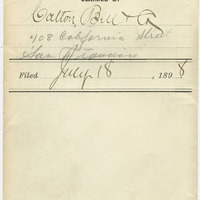 CLAIMED BY
Catton, Bell & Co
408 California Street
San Francisco
Filed July 18, 1898